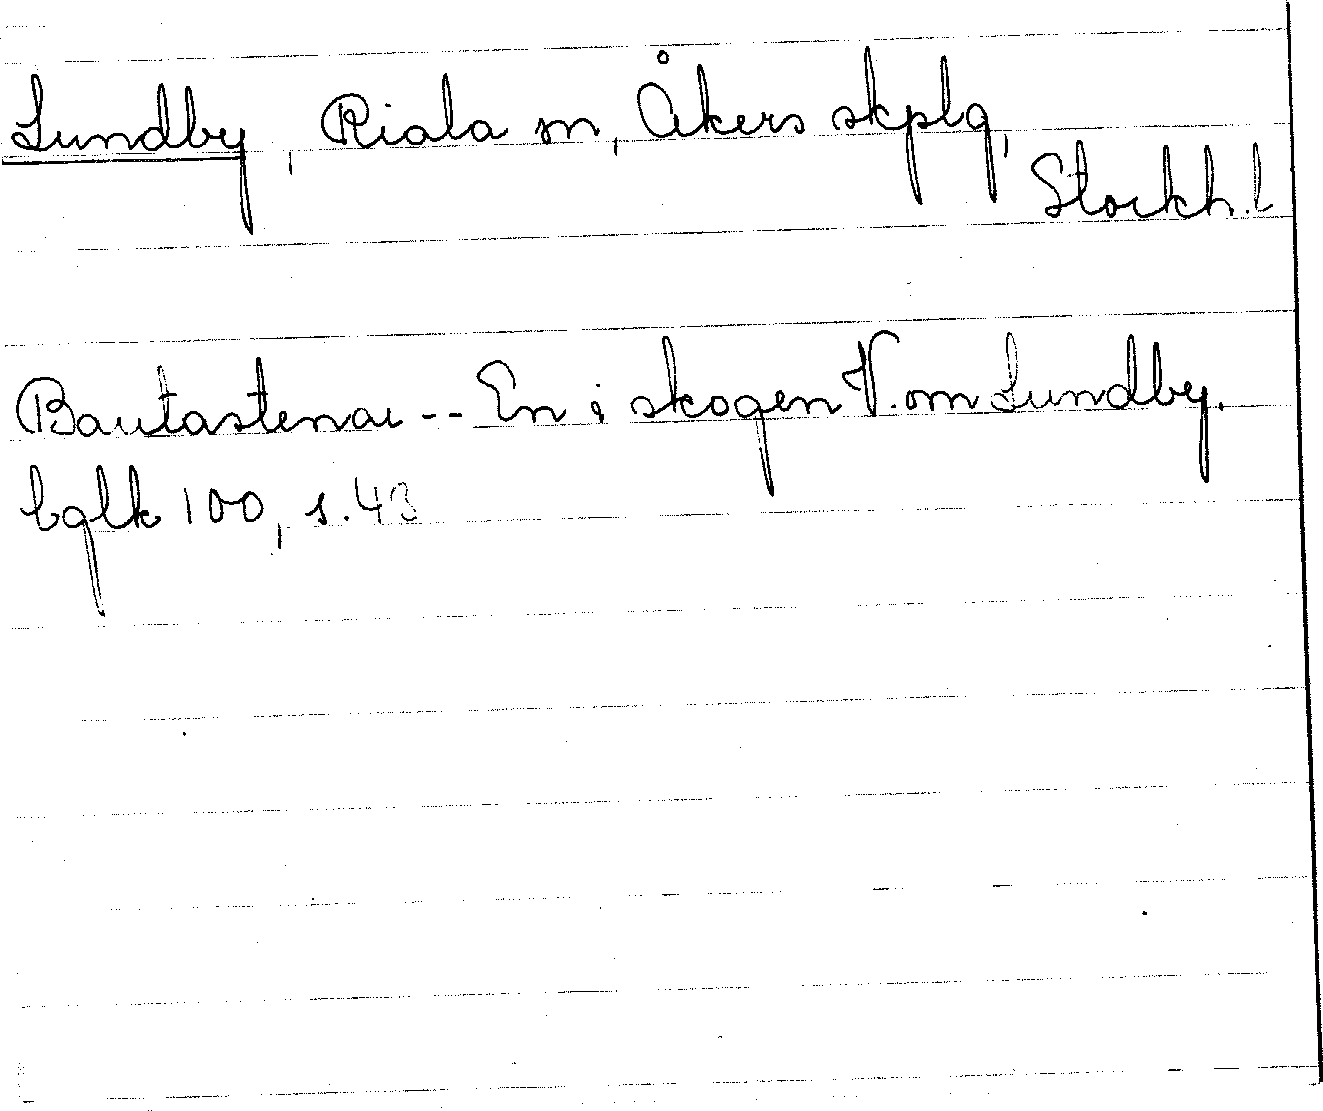 Lundby, Riala sn, Åkers skplg,
Stockh. l
Bautastenar -- En i skogen V. om Lundby.
bglk 100, s. 43